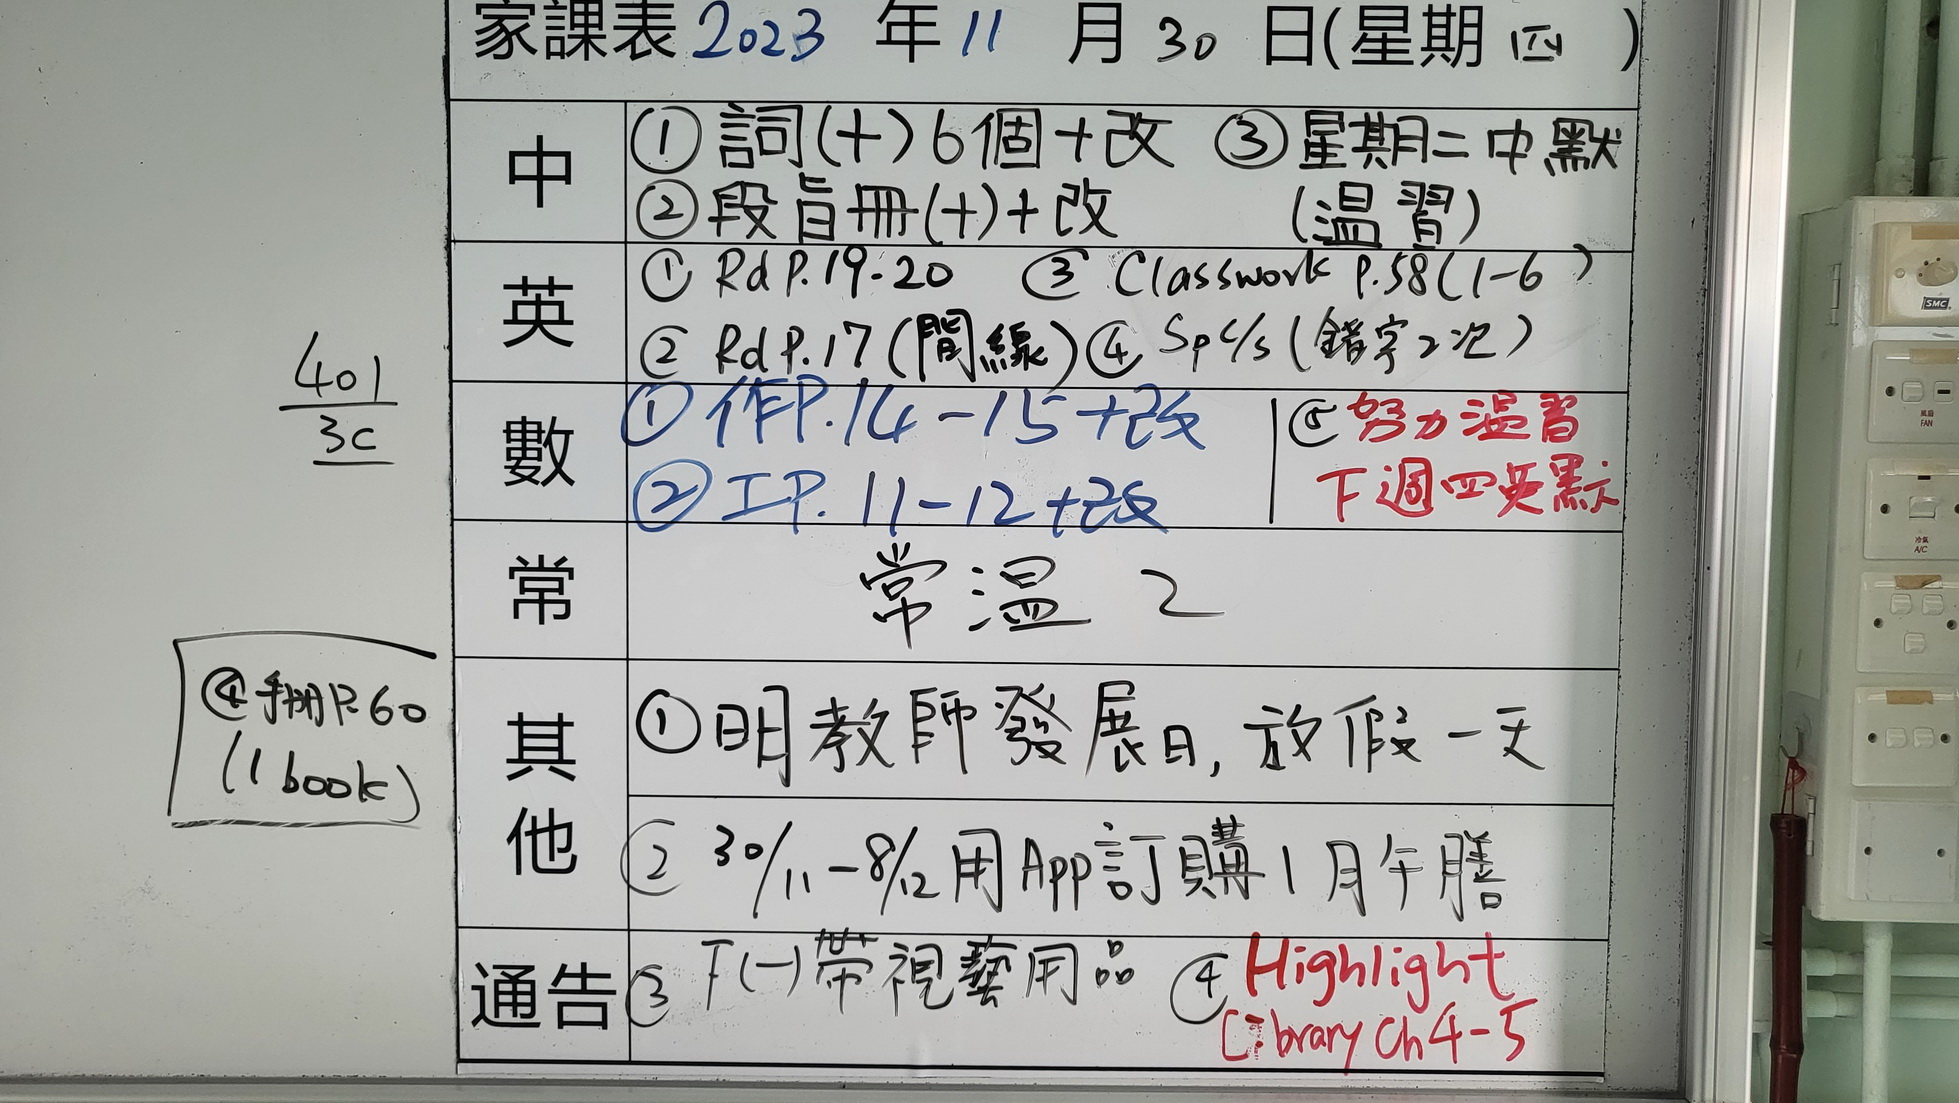 家課表 2023 年 11 月 30 日(星期 四 )
中
① 詞(十)6個+改 ③ 星期二中默
② 段旨冊(十)+改 (温習)
英
① Rd P.19-20 ③ Classwork P.58(1-6)
② Rd P.17 (間線) ④ Sp c/s (錯字2次)
數
① 作P.14-15+改 ⑤ 努力温習
② 工P. 11-12+改 下週四英默
常
常温 2
401
3C
④ 手冊P.60
(1 book)
其他
① 明教師發展日, 放假一天
② 30/11-8/12用App訂購1月午膳
通告
③ 下(一)帶視藝用品 ④ Highlight
Library Ch 4-5
SMC
風扇
FAN
冷氣
A/C